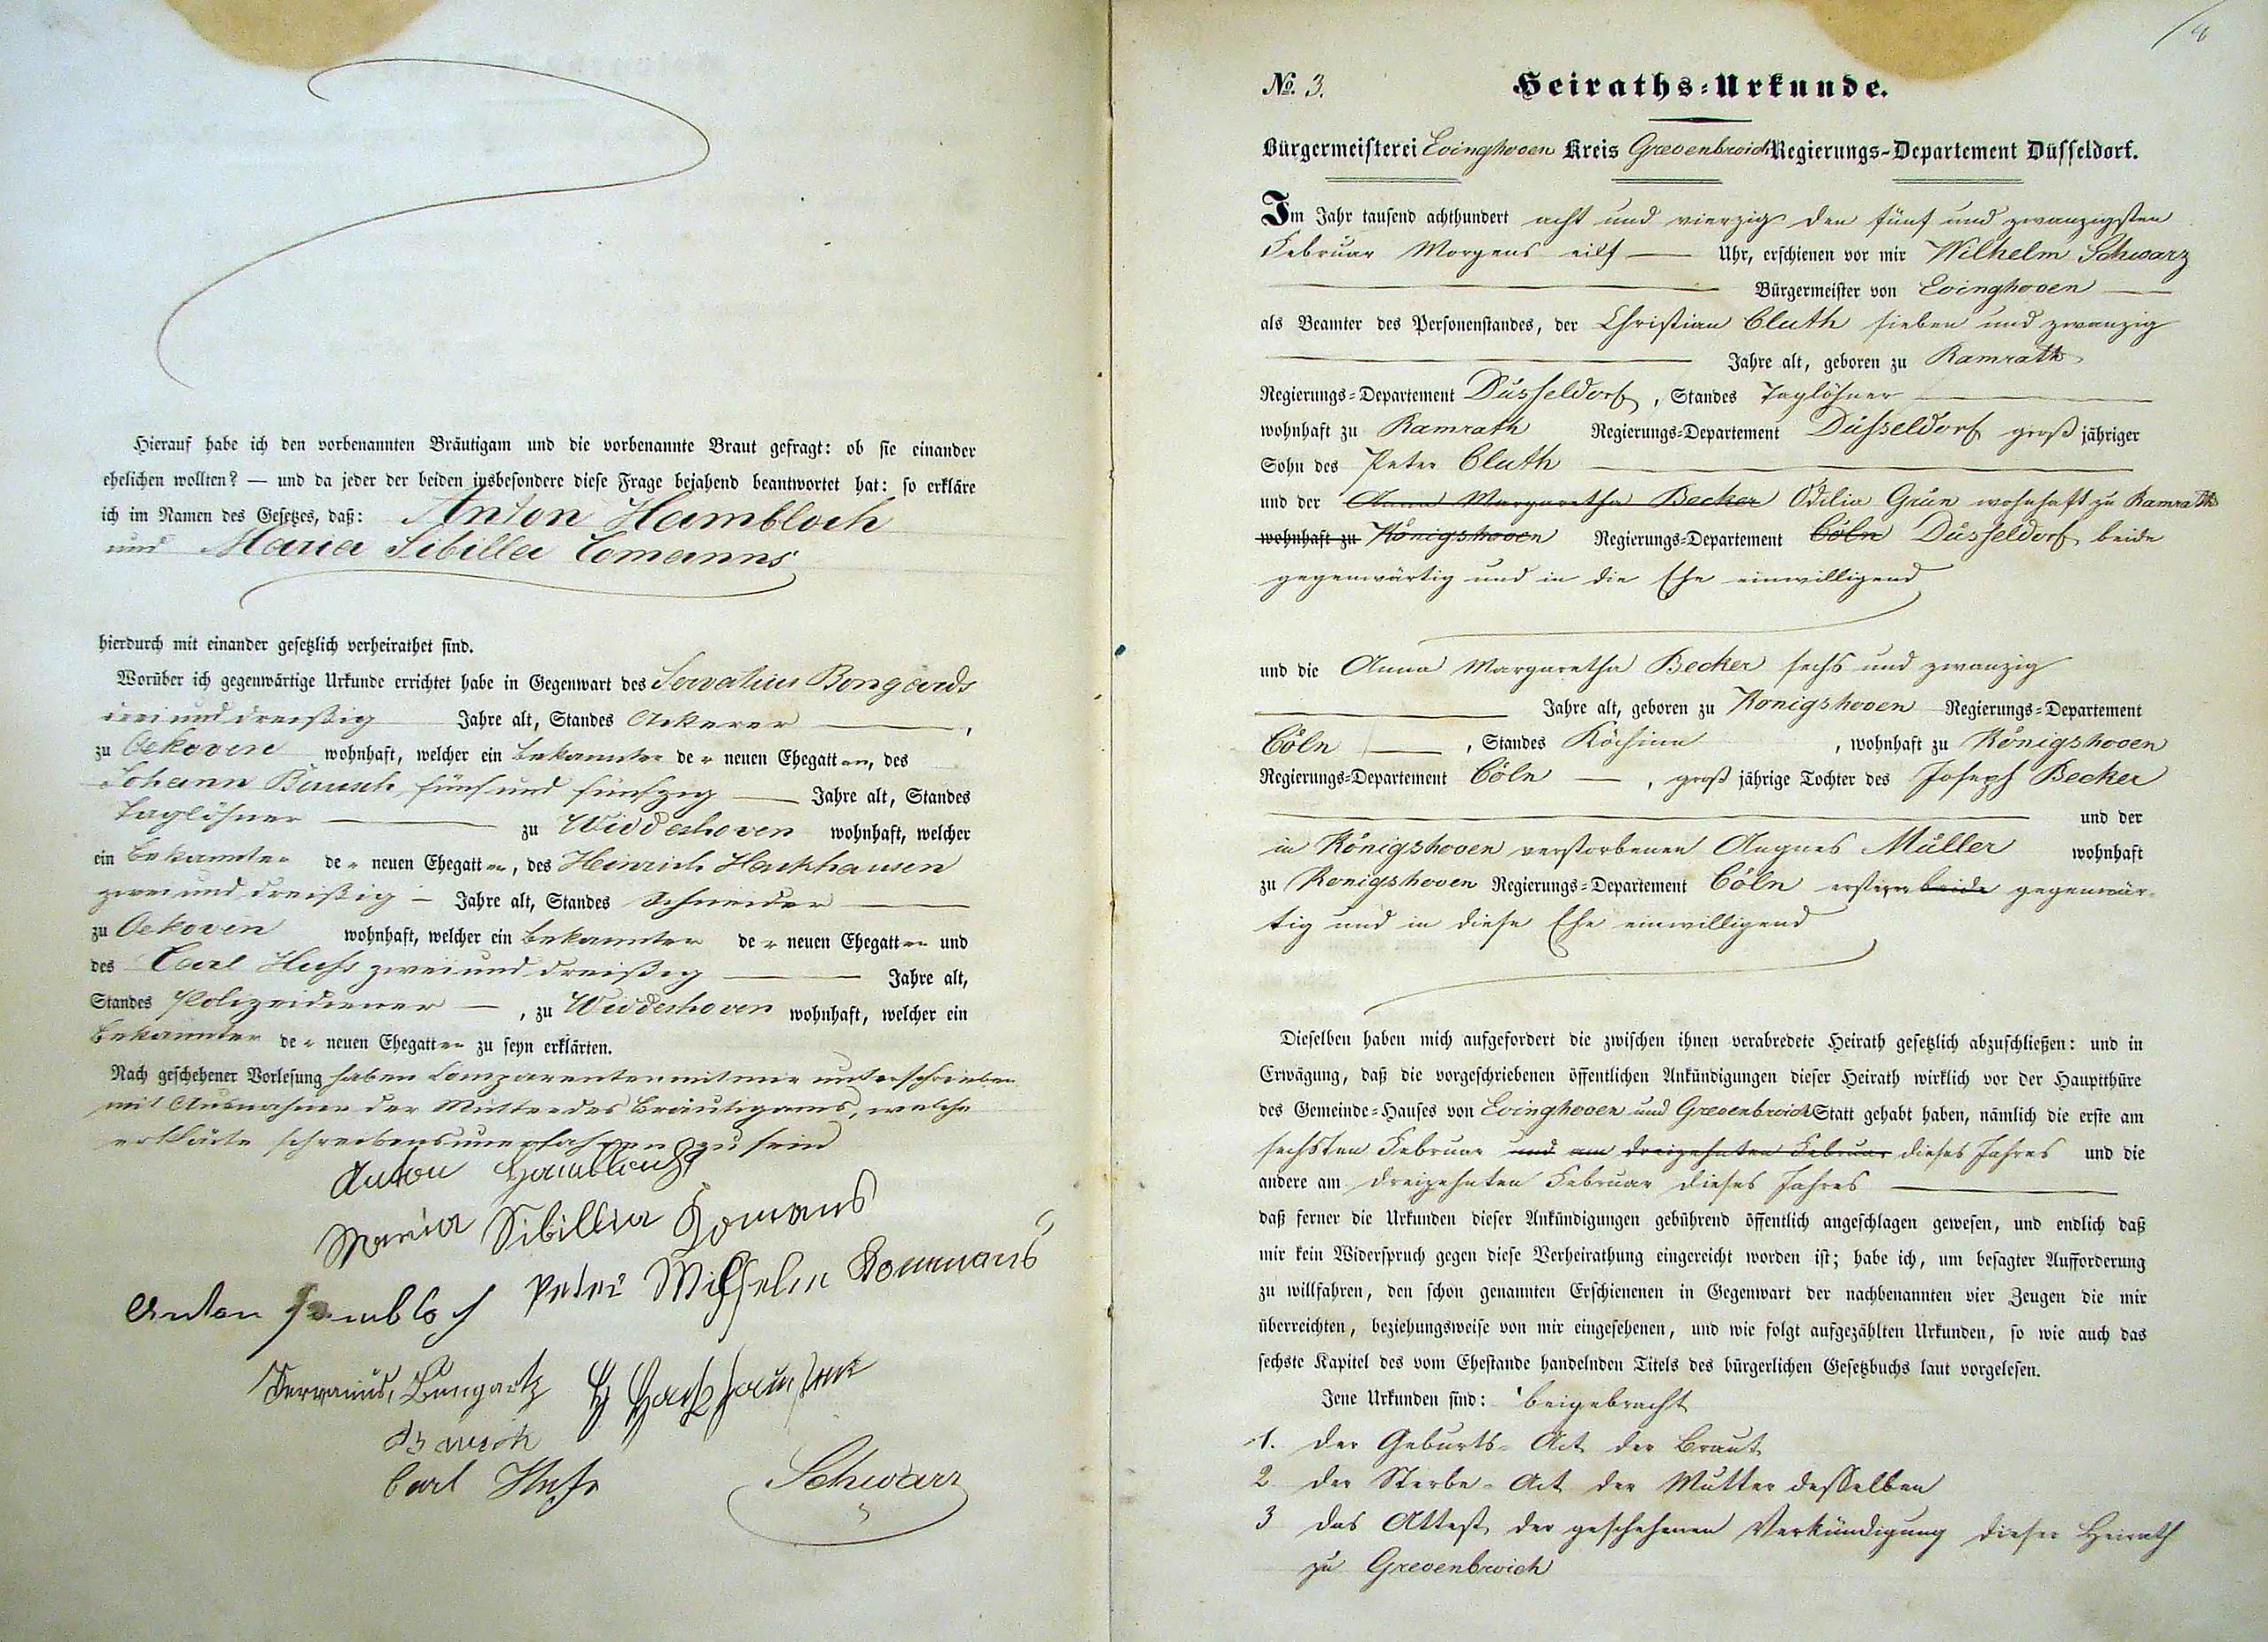 Hierauf habe ich den vorbenannten Bräutigam und die vorbenannte Braut gefragt: ob sie einander
ehelichen wollten? — und da jeder der beiden insbesondere diese Frage bejahend beantwortet hat: so erkläre
ich im Namen des Gesetzes, daß: Anton Hambloch
und Maria Sibilla Comanns
hierdurch mit einander gesetzlich verheirathet sind.
Worüber ich gegenwärtige Urkunde errichtet habe in Gegenwart des Servatius Bongards
drei und dreißig Jahre alt, Standes Ackerer,
zu Oekoven wohnhaft, welcher ein bekannter der neuen Ehegatten, des
Johann Bausch fünf und fünfzig Jahre alt, Standes
Taglöhner zu Widdeshoven wohnhaft, welcher
ein bekannter der neuen Ehegatten, des Heinrich Hackhausen
zwei und dreißig Jahre alt, Standes Schneider
zu Oekoven wohnhaft, welcher ein bekannter der neuen Ehegatten und
des Carl Huhs zwei und dreißig Jahre alt,
Standes Polizeidiener, zu Widdeshoven wohnhaft, welcher ein
bekannter der neuen Ehegatten zu seyn erklärten.
Nach geschehener Vorlesung haben Comparenten mit mir unterschrieben
mit Ausnahme der Mutter des Bräutigams, welche
erklärte schreibensunerfahren zu sein
Anton Hambloch
Maria Sibilla Comans
Anton Hambloch Peter Wilhelm Commans
Servatius Bungartz H Hackhausen
Bausch
Carl Huhs Schwarz
No. 3. Heiraths-Urkunde.
Bürgermeisterei Evinghoven Kreis Grevenbroich Regierungs-Departement Düsseldorf.
Im Jahr tausend achthundert acht und vierzig den fünf und zwanzigsten
Februar Morgens eilf Uhr, erschienen vor mir Wilhelm Schwarz
Bürgermeister von Evinghoven
als Beamter des Personenstandes, der Christian Cluth sieben und zwanzig
Jahre alt, geboren zu Ramrath
Regierungs-Departement Düsseldorf, Standes Taglöhner
wohnhaft zu Ramrath Regierungs-Departement Düsseldorf groß jähriger
Sohn des Peter Cluth
und der Anna Margaretha Becker Odilia Grün wohnhaft zu Ramrath
wohnhaft zu Königshoven Regierungs-Departement Cöln Düsseldorf beide
gegenwärtig und in die Ehe einwilligend
und die Anna Margaretha Becker sechs und zwanzig
Jahre alt, geboren zu Königshoven Regierungs-Departement
Cöln, Standes Köchinn, wohnhaft zu Königshoven
Regierungs-Departement Cöln, groß jährige Tochter des Joseph Becker
und der
in Königshoven verstorbenen Angnes Müller wohnhaft
zu Königshoven Regierungs-Departement Cöln ersterer beide gegenwär-
tig und in diese Ehe einwilligend
Dieselben haben mich aufgefordert die zwischen ihnen verabredete Heirath gesetzlich abzuschließen: und in
Erwägung, daß die vorgeschriebenen öffentlichen Ankündigungen dieser Heirath wirklich vor der Hauptthüre
des Gemeinde-Hauses von Evinghoven und Grevenbroich Statt gehabt haben, nämlich die erste am
sechsten Februar und am dreizehnten Februar dieses Jahres und die
andere am dreizehnten Februar dieses Jahres
daß ferner die Urkunden dieser Ankündigungen gebührend öffentlich angeschlagen gewesen, und endlich daß
mir kein Widerspruch gegen diese Verheirathung eingereicht worden ist; habe ich, um besagter Aufforderung
zu willfahren, den schon genannten Erschienenen in Gegenwart der nachbenannten vier Zeugen die mir
überreichten, beziehungsweise von mir eingesehenen, und wie folgt aufgezählten Urkunden, so wie auch das
sechste Kapitel des vom Ehestande handelnden Titels des bürgerlichen Gesetzbuchs laut vorgelesen.
Jene Urkunden sind: beigebracht
1. der Geburts-Act der Braut
2 der Sterbe-Act der Mutter desselben
3 das Attest der geschehenen Verkündigung dieser Heirath
zu Grevenbroich